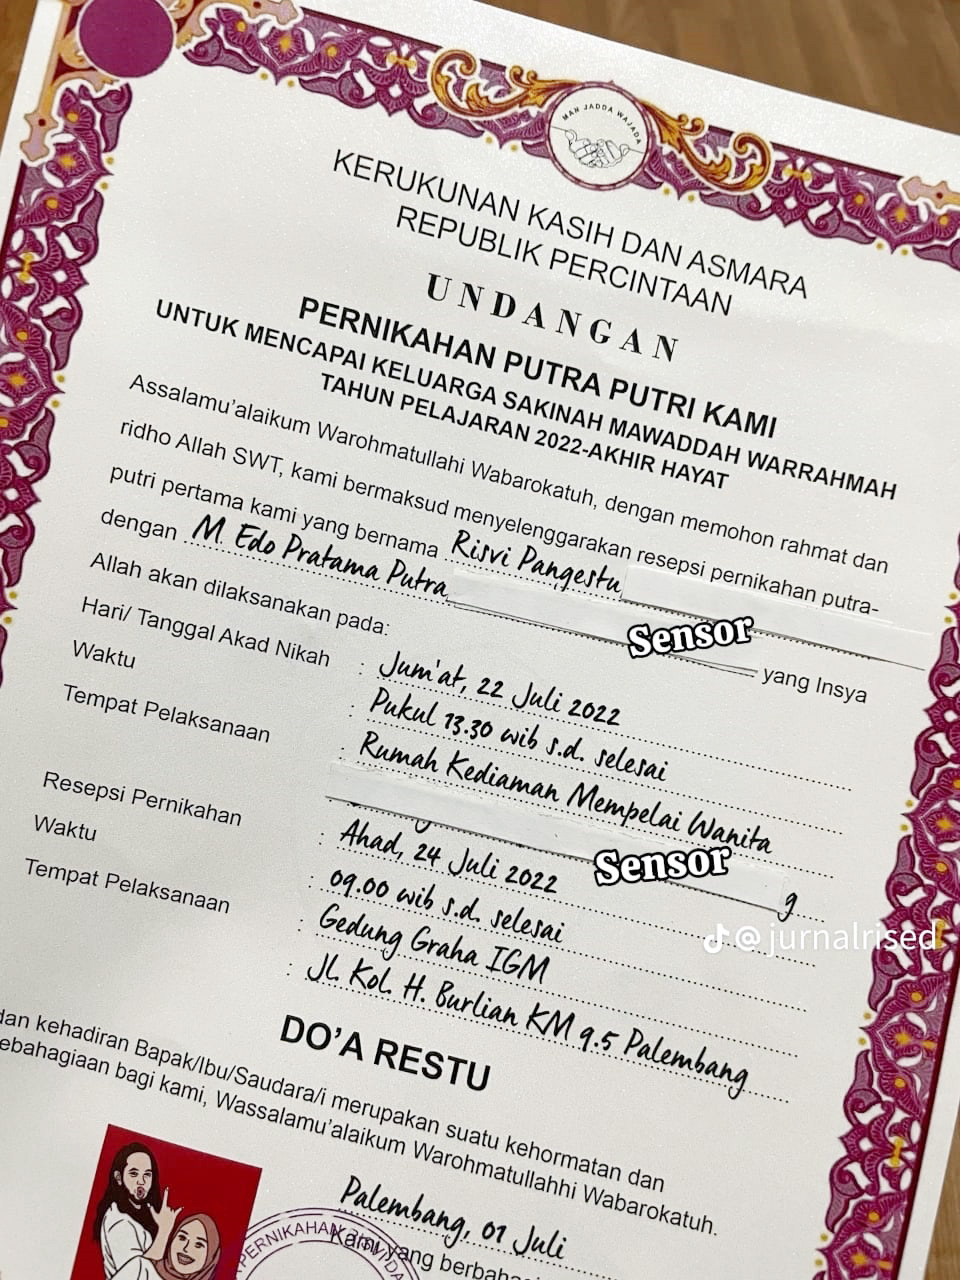 MAN JADDA WAJADA
KERUKUNAN KASIH DAN ASMARA
REPUBLIK PERCINTAAN
UNDANGAN
PERNIKAHAN PUTRA PUTRI KAMI
UNTUK MENCAPAI KELUARGA SAKINAH MAWADDAH WARRAHMAH
TAHUN PELAJARAN 2022-AKHIR HAYAT
Assalamu'alaikum Warohmatullahi Wabarokatuh, dengan memohon rahmat dan
ridho Allah SWT, kami bermaksud menyelenggarakan resepsi pernikahan putra-
putri pertama kami yang bernama Risvi Pangestu
dengan M. Edo Pratama Putra
Sensor
yang Insya
Allah akan dilaksanakan pada:
Hari/ Tanggal Akad Nikah : Jum'at, 22 Juli 2022
Waktu : Pukul 13.30 wib s.d. selesai
Tempat Pelaksanaan : Rumah Kediaman Mempelai Wanita
Sensor
g
Resepsi Pernikahan : Ahad, 24 Juli 2022
Waktu : 09.00 wib s.d. selesai
Tempat Pelaksanaan : Gedung Graha IGM
: Jl. Kol. H. Burlian KM 9.5 Palembang
@jurnalrised
DO'A RESTU
dan kehadiran Bapak/Ibu/Saudara/i merupakan suatu kehormatan dan
ebahagiaan bagi kami, Wassalamu'alaikum Warohmatullahhi Wabarokatuh.
Palembang, 01 Juli
Kami yang berbaha
PERNIKAHAN